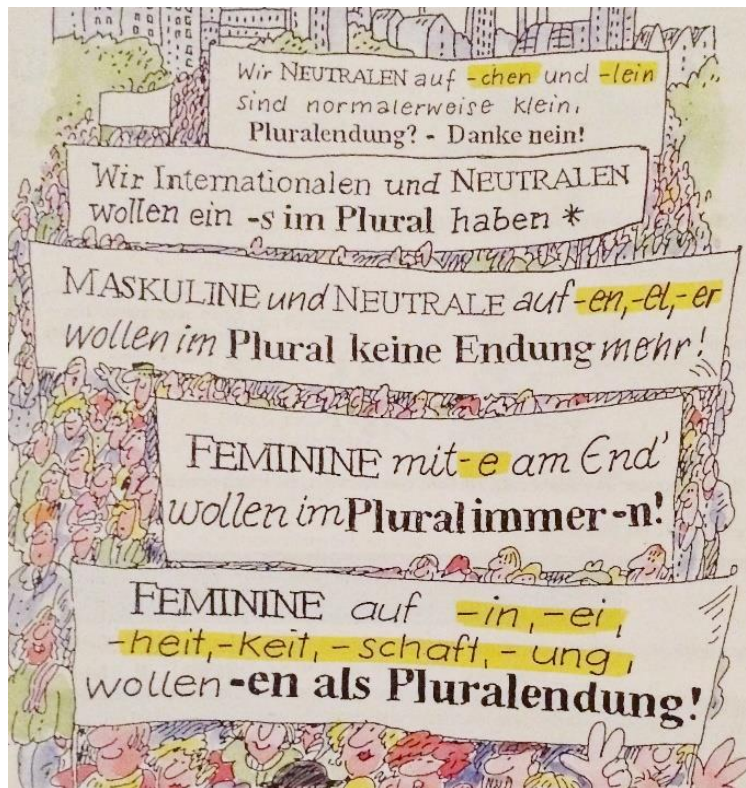 Wir NEUTRALEN auf -chen und -lein
sind normalerweise klein,
Pluralendung? - Danke nein!
Wir Internationalen und NEUTRALEN
wollen ein -s im Plural haben *
MASKULINE und NEUTRALE auf -en, -el, -er
wollen im Plural keine Endung mehr!
FEMININE mit -e am End'
wollen im Plural immer -n!
FEMININE auf -in, -ei,
-heit, -keit, -schaft, -ung,
wollen -en als Pluralendung!